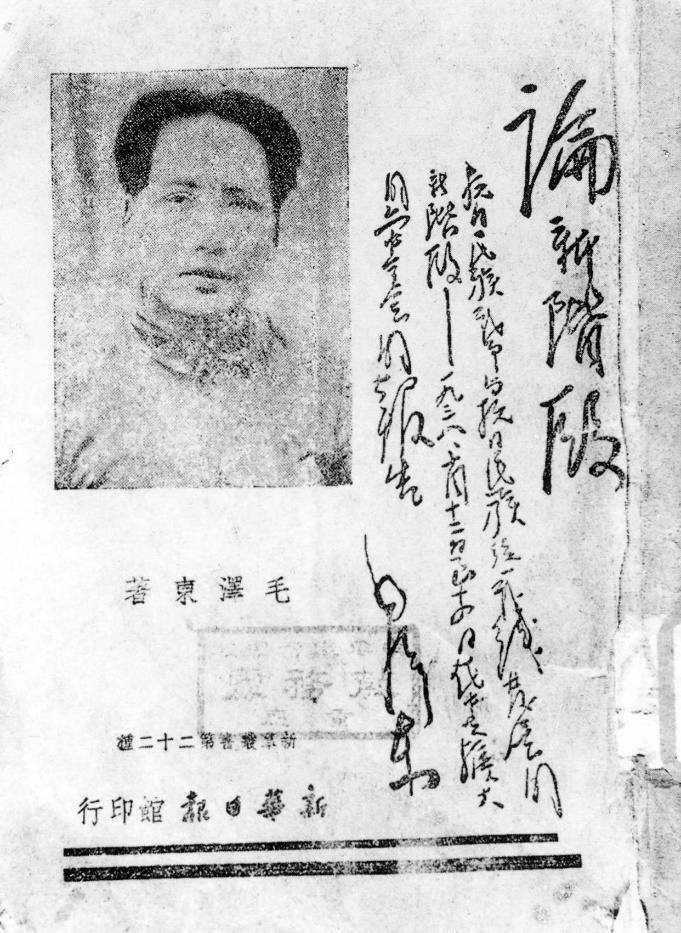 論新階段
抗日民族戰爭與抗日民族統一戰綫發展的
新階段——一九三八、十月十二日至十四日在中央擴大
的六中全會的報告
毛澤東
毛澤東著
新羣叢書第二十二種
新華日報館印行